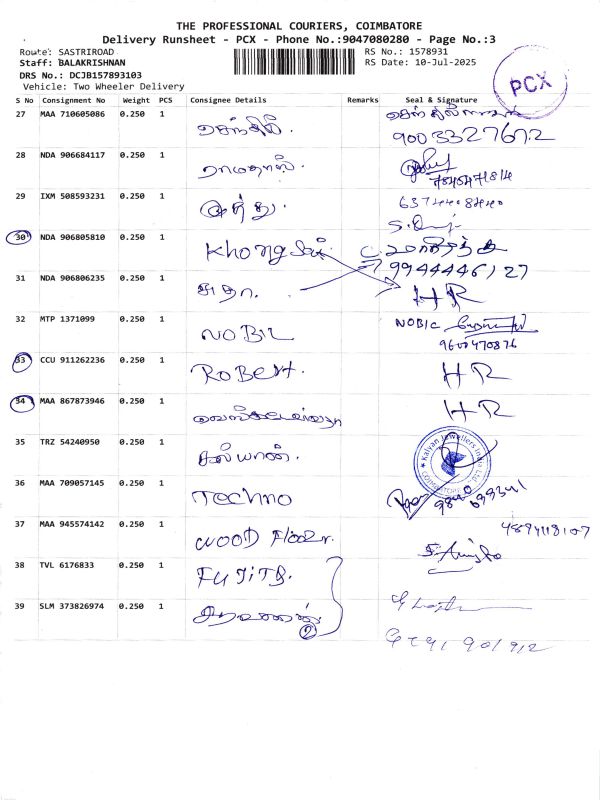 THE PROFESSIONAL COURIERS, COIMBATORE
Delivery Runsheet - PCX - Phone No.:9047080280 - Page No.:3
Route: SASTRIROAD
RS No.: 1578931
Staff: BALAKRISHNAN
RS Date: 10-Jul-2025
DRS No.: DCJB157893103
Vehicle: Two Wheeler Delivery
PCX
S No Consignment No Weight PCS Consignee Details Remarks Seal & Signature
27 MAA 710605086 0.250 1 செந்தில்.
28 NDA 906684117 0.250 1 ராமதாஸ்.
7845471814
29 IXM 508593231 0.250 1
30 NDA 906805810 0.250 1 Khongsai
9944446127
31 NDA 906806235 0.250 1 சுதா. HR
32 MTP 1371099 0.250 1 NOBIL NOBIC
9600470876
33 CCU 911262236 0.250 1 RoBert. HR
34 MAA 867873946 0.250 1 HR
35 TRZ 54240950 0.250 1 கல்யாண்.
Kalyan Jewellers India Ltd.
36 MAA 709057145 0.250 1 Techno
37 MAA 945574142 0.250 1 WOOD Floor. 4894118107
38 TVL 6176833 0.250 1 FUJITS.
39 SLM 373826974 0.250 1 சரவணன்
2